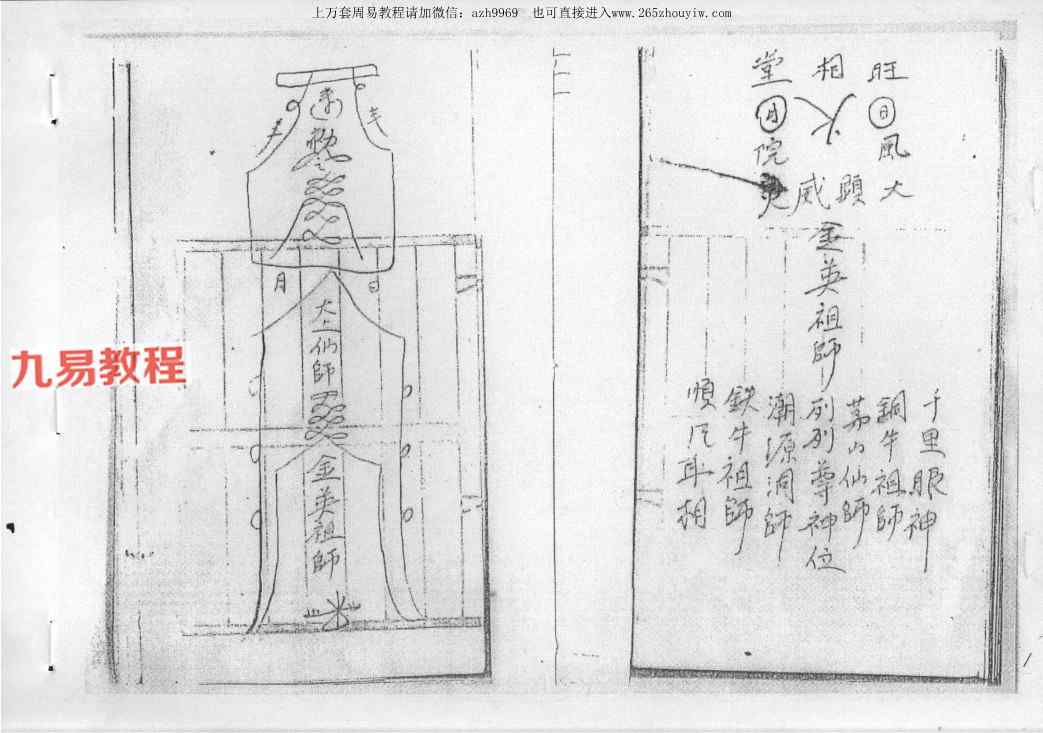 上万套周易教程请加微信：azh9969　也可直接进入www.265zhouyiw.com
旺相堂
日 火 月
風 院
大顯威灵
金英祖師列列尊神位
千里眼神
銅牛祖師
茅山仙師
潮源洞師
鉄牛祖師
順風耳相
勅令
日
月
太上仙師
金英祖師
九易教程